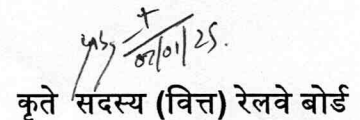 02/01/25.
कृते सदस्य (वित्त) रेलवे बोर्ड